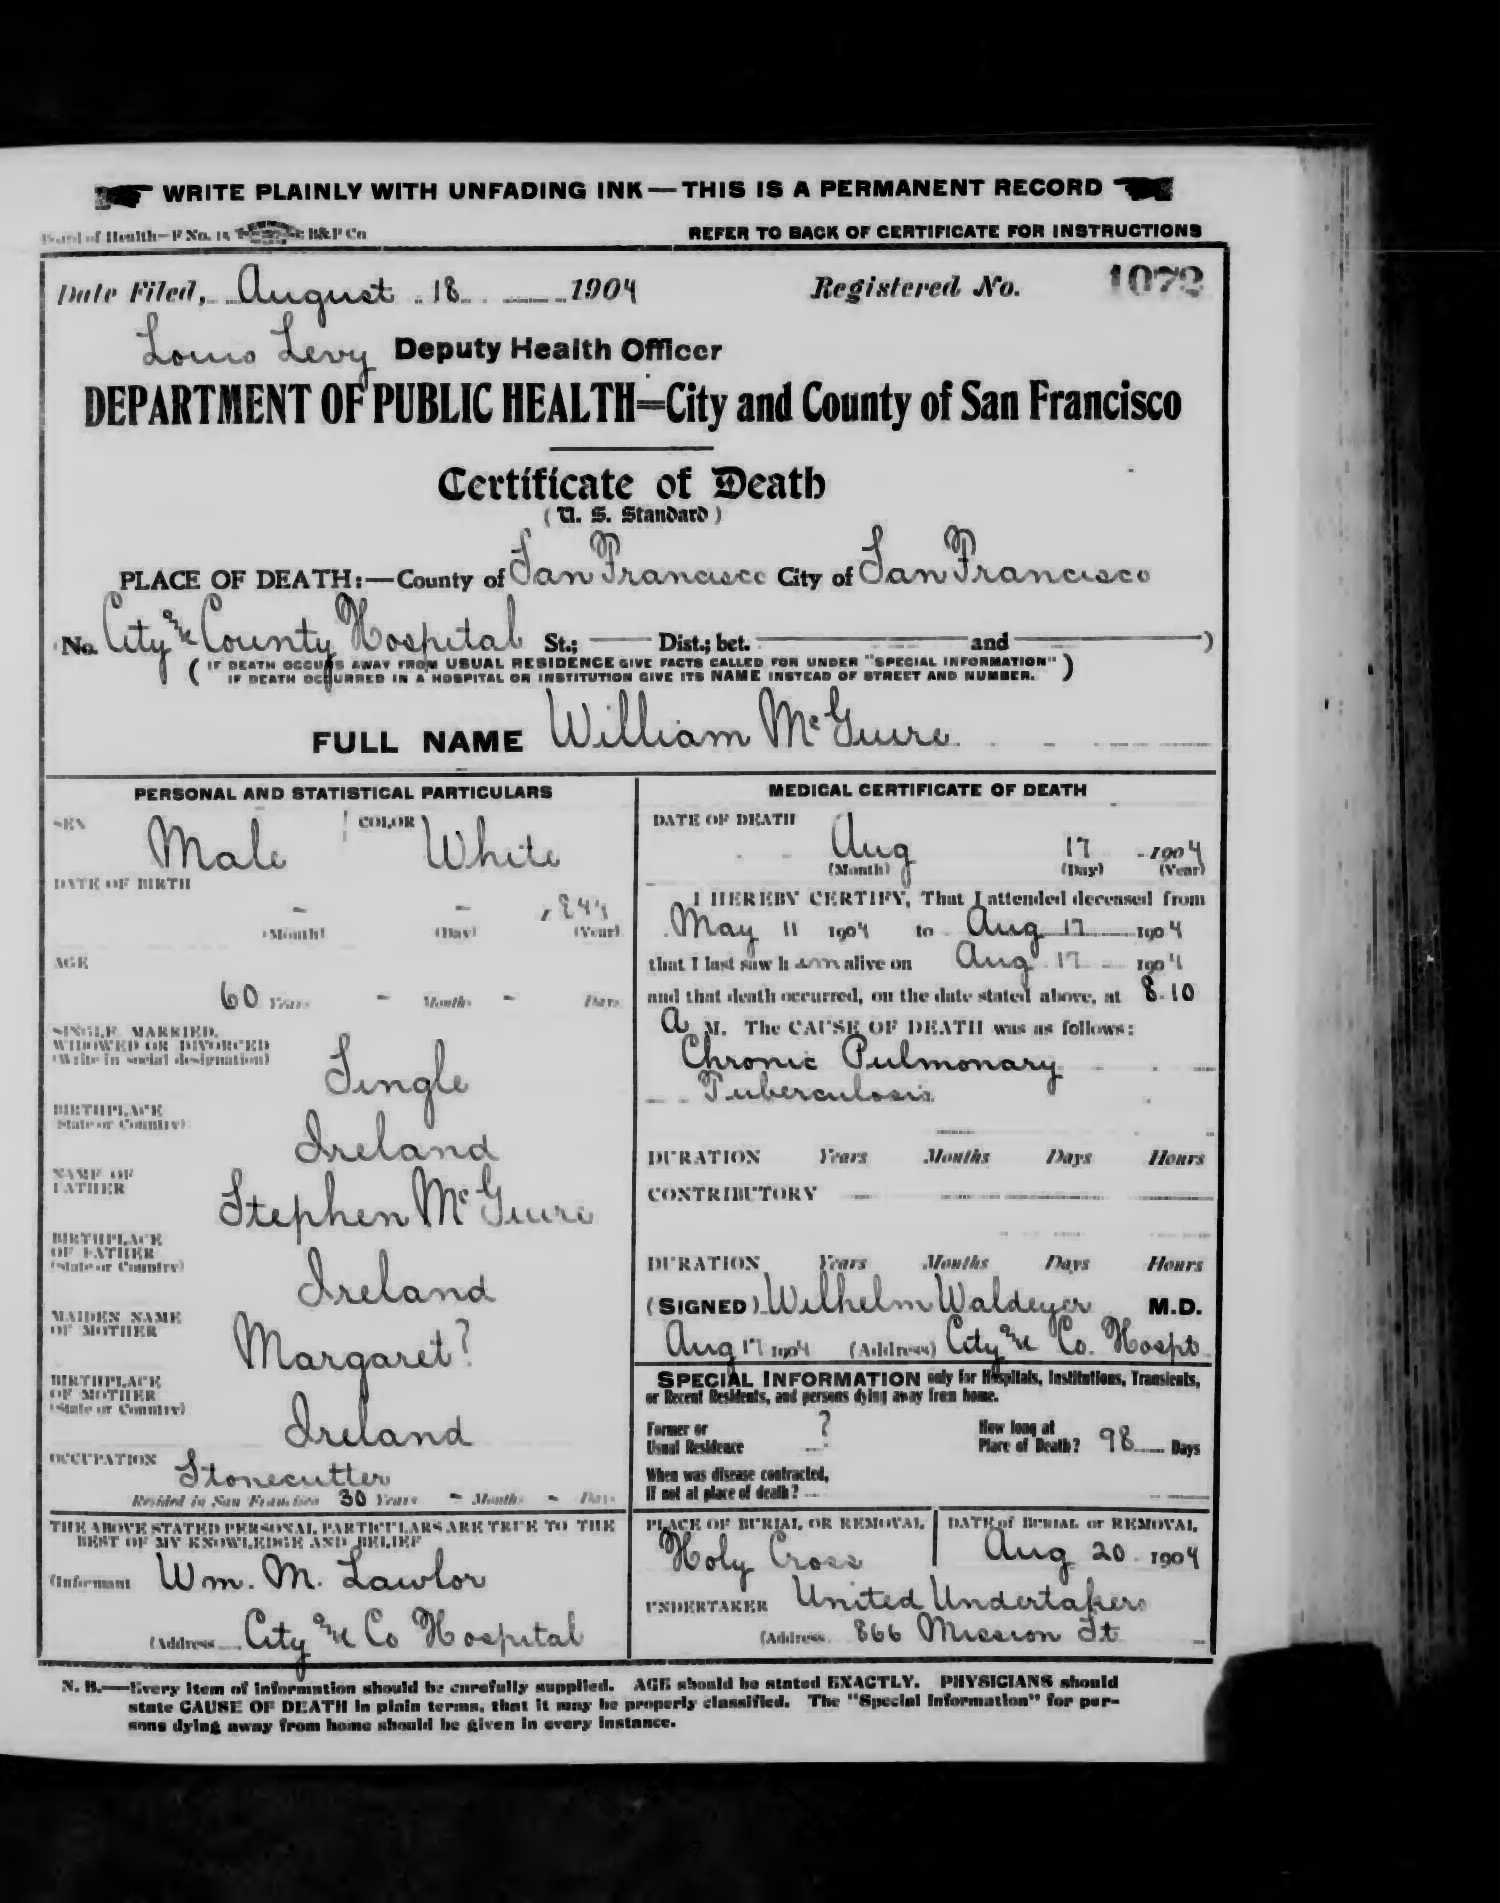 WRITE PLAINLY WITH UNFADING INK — THIS IS A PERMANENT RECORD
Board of Health—F No. 14 B&P Co
REFER TO BACK OF CERTIFICATE FOR INSTRUCTIONS
Date Filed, August 18 1904 Registered No. 1072
Louis Levy Deputy Health Officer
DEPARTMENT OF PUBLIC HEALTH=City and County of San Francisco
Certificate of Death
(U. S. Standard)
PLACE OF DEATH:—County of San Francisco City of San Francisco
No. City and County Hospital St.; Dist.; bet. and )
( IF DEATH OCCURS AWAY FROM USUAL RESIDENCE GIVE FACTS CALLED FOR UNDER "SPECIAL INFORMATION" )
IF DEATH OCCURRED IN A HOSPITAL OR INSTITUTION GIVE ITS NAME INSTEAD OF STREET AND NUMBER.
FULL NAME William McGuire
PERSONAL AND STATISTICAL PARTICULARS
SEX Male COLOR White
DATE OF BIRTH
- - 1844
(Month) (Day) (Year)
AGE
60 Years - Months - Days
SINGLE, MARRIED,
WIDOWED OR DIVORCED
(Write in social designation)
Single
BIRTHPLACE
(State or Country)
Ireland
NAME OF
FATHER
Stephen McGuire
BIRTHPLACE
OF FATHER
(State or Country)
Ireland
MAIDEN NAME
OF MOTHER
Margaret ?
BIRTHPLACE
OF MOTHER
(State or Country)
Ireland
OCCUPATION
Stonecutter
Resided in San Francisco 30 Years - Months - Days
THE ABOVE STATED PERSONAL PARTICULARS ARE TRUE TO THE
BEST OF MY KNOWLEDGE AND BELIEF
(Informant Wm. M. Lawlor
(Address City and Co Hospital
MEDICAL CERTIFICATE OF DEATH
DATE OF DEATH
Aug 17 1904
(Month) (Day) (Year)
I HEREBY CERTIFY, That I attended deceased from
May 11 1904 to Aug 17 1904
that I last saw him alive on Aug 17 1904
and that death occurred, on the date stated above, at 8.10
A M. The CAUSE OF DEATH was as follows:
Chronic Pulmonary
Tuberculosis
DURATION Years Months Days Hours
CONTRIBUTORY
DURATION Years Months Days Hours
(SIGNED) Wilhelm Waldeyer M.D.
Aug 17 1904 (Address) City and Co. Hospt
SPECIAL INFORMATION only for Hospitals, Institutions, Transients,
or Recent Residents, and persons dying away from home.
Former or
Usual Residence ?
How long at
Place of Death? 98 Days
When was disease contracted,
If not at place of death?
PLACE OF BURIAL OR REMOVAL
Holy Cross
DATE of BURIAL or REMOVAL
Aug 20 1904
UNDERTAKER United Undertakers
(Address 866 Mission St
N. B.—Every item of information should be carefully supplied. AGE should be stated EXACTLY. PHYSICIANS should
state CAUSE OF DEATH in plain terms, that it may be properly classified. The "Special Information" for per-
sons dying away from home should be given in every instance.